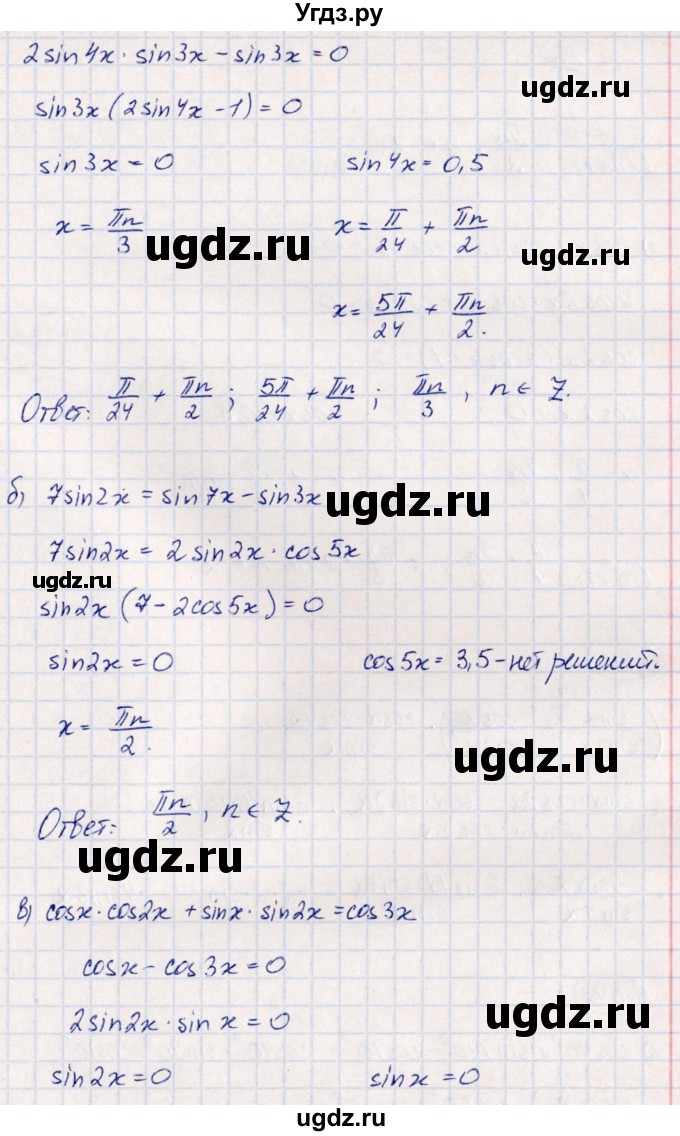 Угдз.ру
2sin4x · sin3x − sin3x = 0
ugdz.ru
sin3x (2sin4x − 1) = 0
sin3x = 0 sin4x = 0,5
x = πn/3 x = π/24 + πn/2
ugdz.ru ugdz.ru
x = 5π/24 + πn/2.
Ответ: π/24 + πn/2 ; 5π/24 + πn/2 ; πn/3 , n ∈ Z.
б) 7sin2x = sin7x − sin3x
ugdz.ru
7sin2x = 2sin2x · cos5x
ugdz.ru
sin2x (7 − 2cos5x) = 0
sin2x = 0 cos5x = 3,5 – нет решений.
x = πn/2.
ugdz.ru
Ответ: πn/2 , n ∈ Z.
ugdz.ru
в) cosx · cos2x + sinx · sin2x = cos3x
cosx − cos3x = 0
2sin2x · sinx = 0
ugdz.ru
sin2x = 0 sinx = 0
ugdz.ru